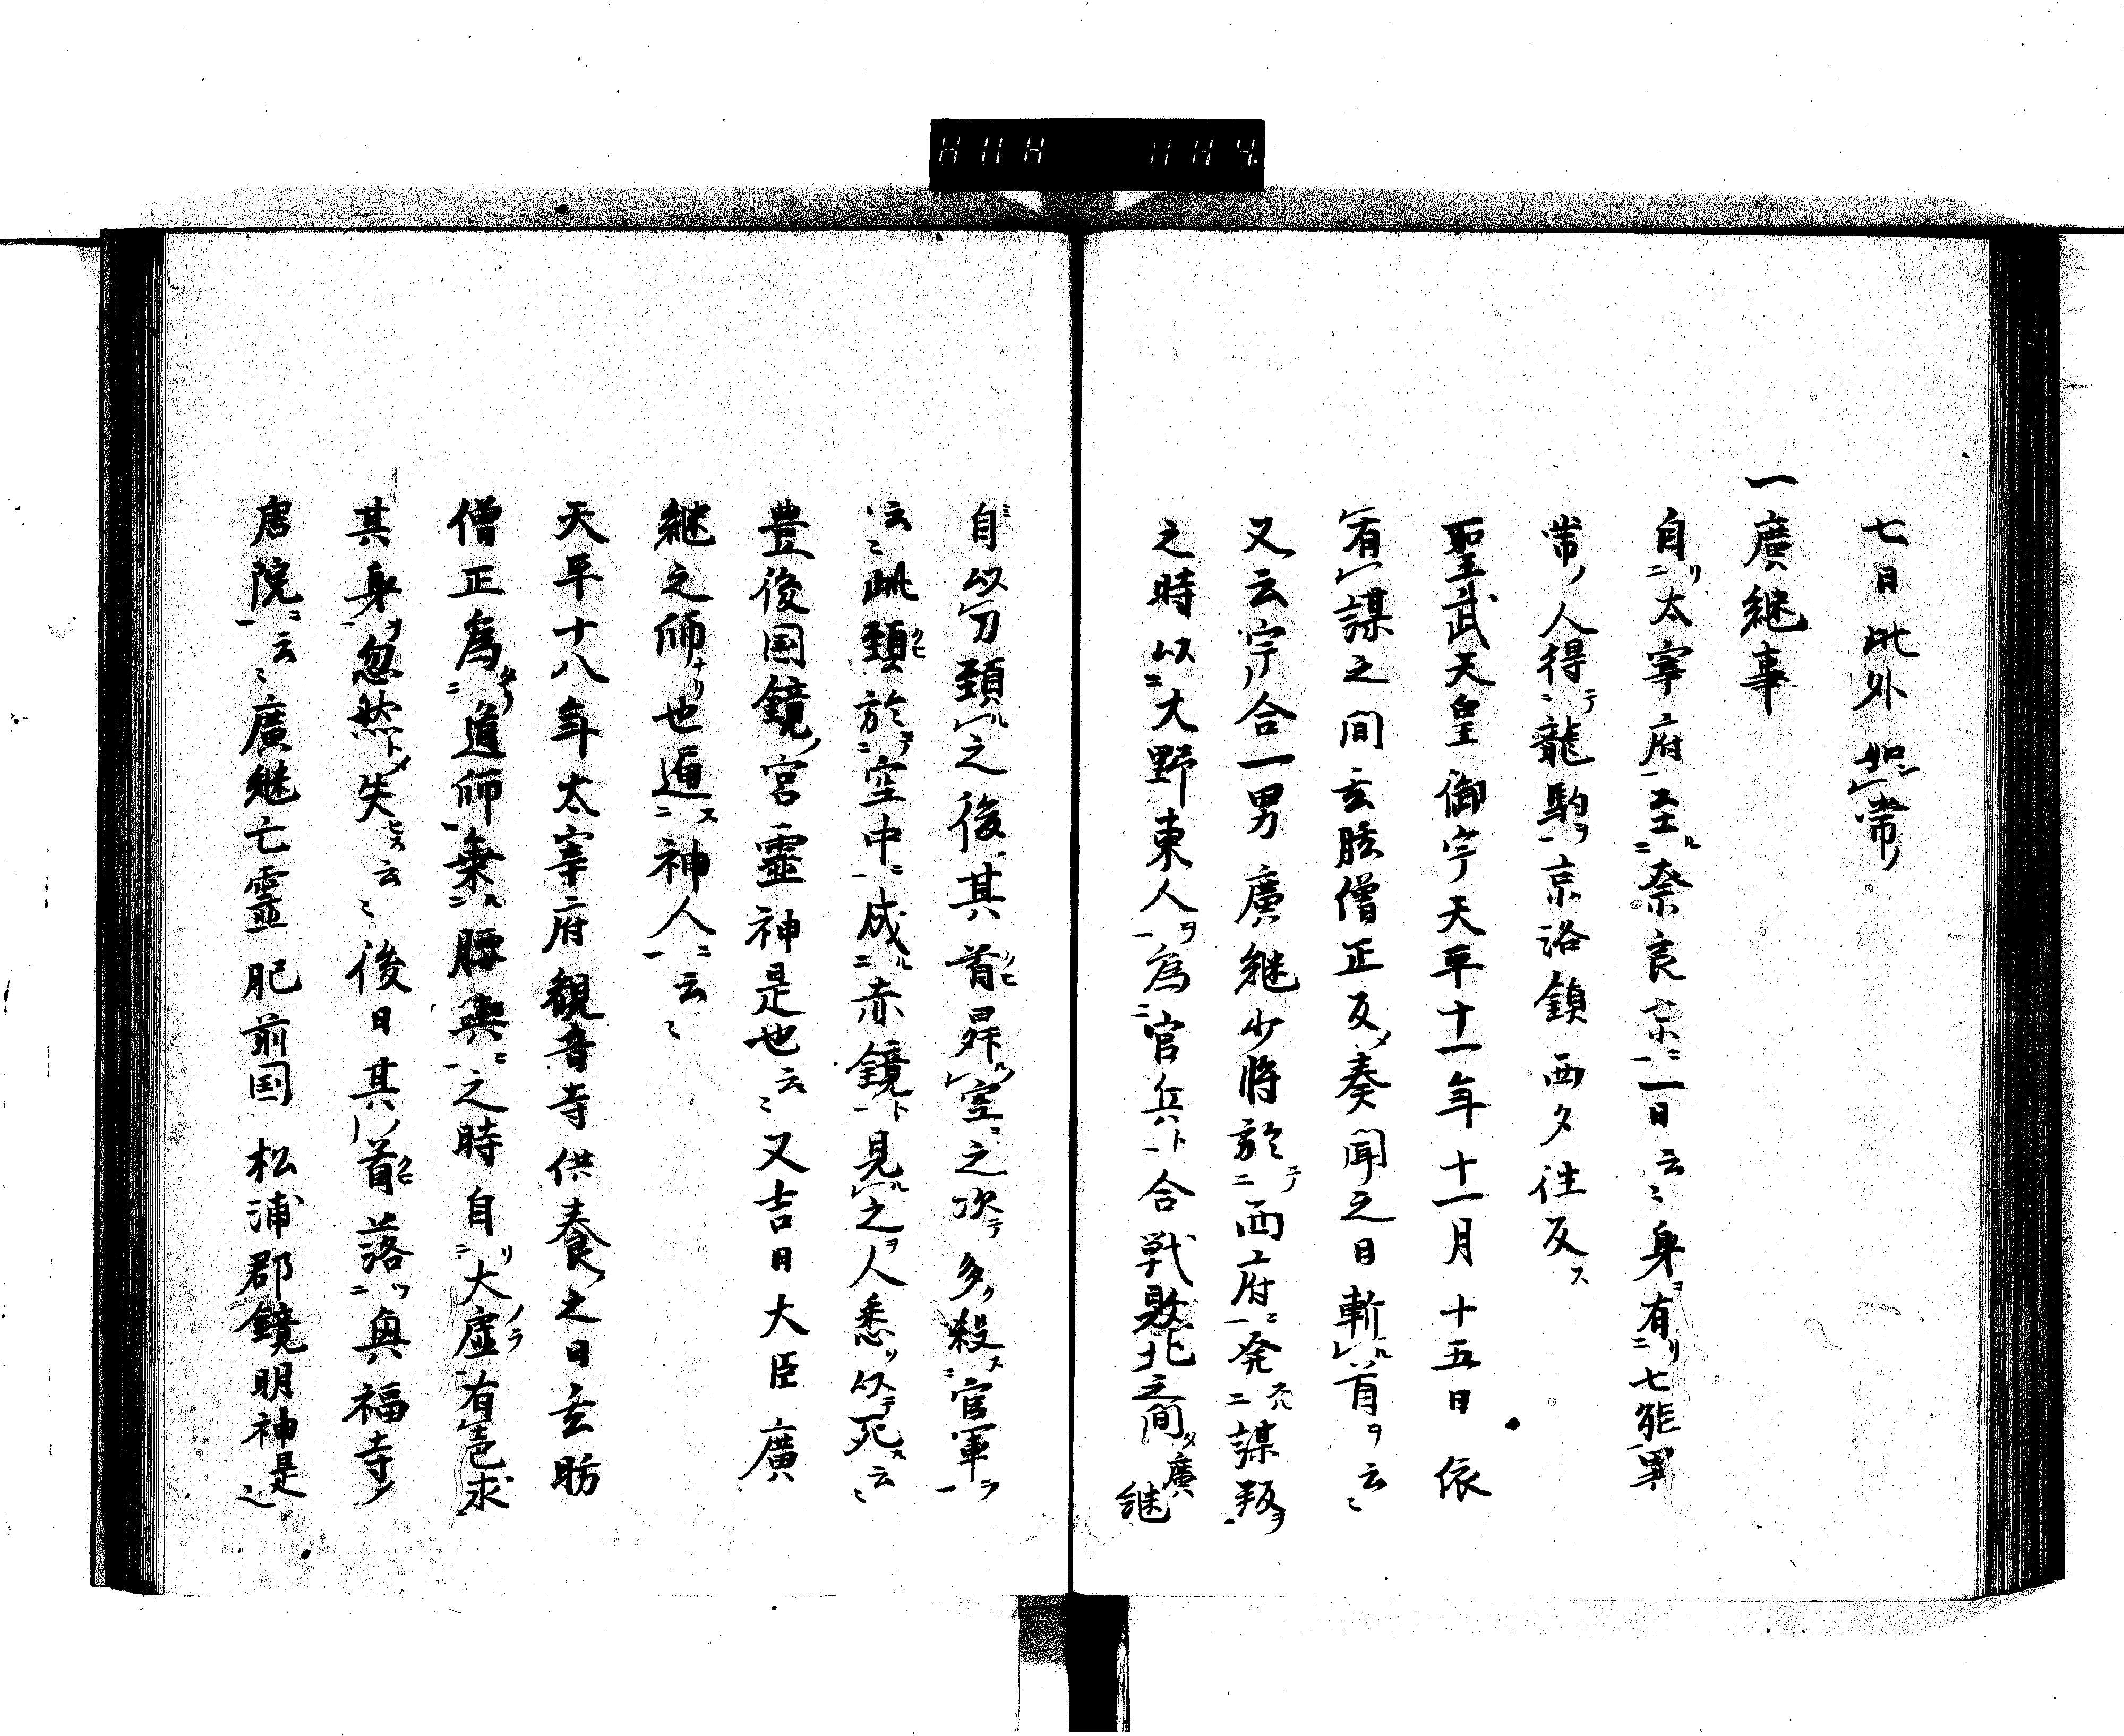 七日此外如常
一廣継事
自太宰府至奈良京一日云〻身有七能異
常人得龍駒京洛鎮西夕往反
聖武天皇御宇天平十一年十一月十五日依
有謀之間玄肪僧正反奏聞之日斬首云〻
又云宇合一男廣継少将於西府発謀叛
之時以大野東人為官兵合戦敗北之間廣継
自以刀頚之後其首昇空之次多殺官軍
云〻此頚於空中成赤鏡見之人悉以死云〻
豊後国鏡宮霊神是也云〻又吉日大臣廣
継之師也通神人云〻
天平十八年太宰府観音寺供養之日玄肪
僧正為道師乗腰輿之時自大虚有色求
其身忽然失云〻後日其首落興福寺
唐院云〻廣継亡霊肥前国松浦郡鏡明神是